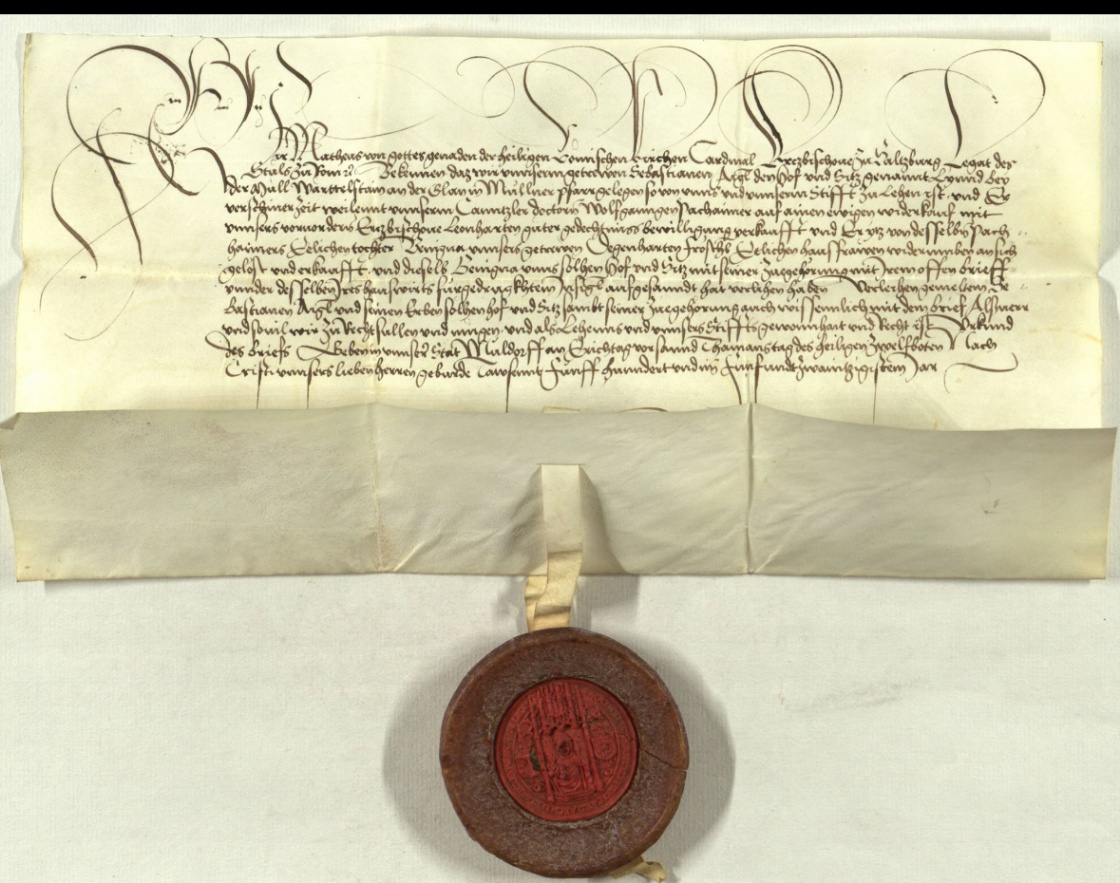 Wir Matheus von gottes genaden der heiligen Romischen Kirchen Cardinal Ertzbischove zu Saltzburg Legat des
Stuls zu Rom Bekennen daz wir unnserm getrewen Sebastianen Aigl den Hof und Sitz genannt bey
der Müll Marttelstain an der Glan in Müllner pfarr gelegen so von unns und unnserm Stifft zu Lehen ist und Er
verschiner zeit weilennt unnserm Canntzler doctorn Wolfganngen Pachaimer auf ainen ewigen widerkauf mit
unnsers vorvordern Ertzbischove Leonharten guter gedechtnuss bewilligung verkaufft und Er ytz von desselben Pach
haimers Eelichen tochter Benigna unnsers getrewen Degenharten Fröschl Eelichen hausfrawen widerumben an sich
gelost und erkaufft und dieselb Benigna unns solhen Hof und Sitz mit seiner zuegehorung mit Irem offen brieff
unnder desselben Ires hauswirts furgedrugkhtem Insigl aufgesanndt hat verlihen haben Verleihen gemeltem Se
bastianen Aigl und seinen Erben solhen hof und Sitz sambt seiner zuegehorung auch wissenntlich mit dem brief Als wir
und sovil wir zu Recht sullen und mugen und als Lehenns und unnsers Stiffts gewonhait und Recht ist Urkund
des briefs Geben in unnser Stat Muldorff an Erichtag vor sannd Thamanstag des heiligen zwelfboten Nach
Cristi unnsers lieben herren geburde Tawsennt Funff hunndert und im Funfundzwaintzigistem Jar